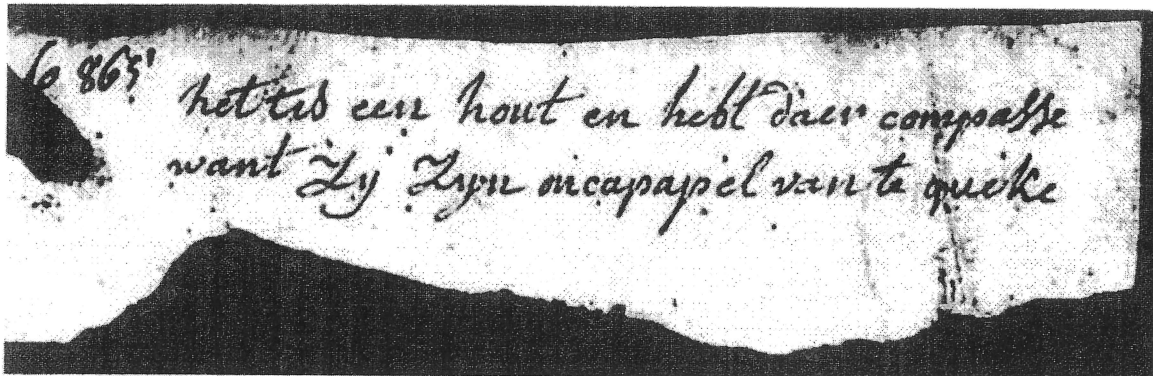 6 865
het tis een hout en hebt daer compasse
want Zij Zyn oncapapel van te queke